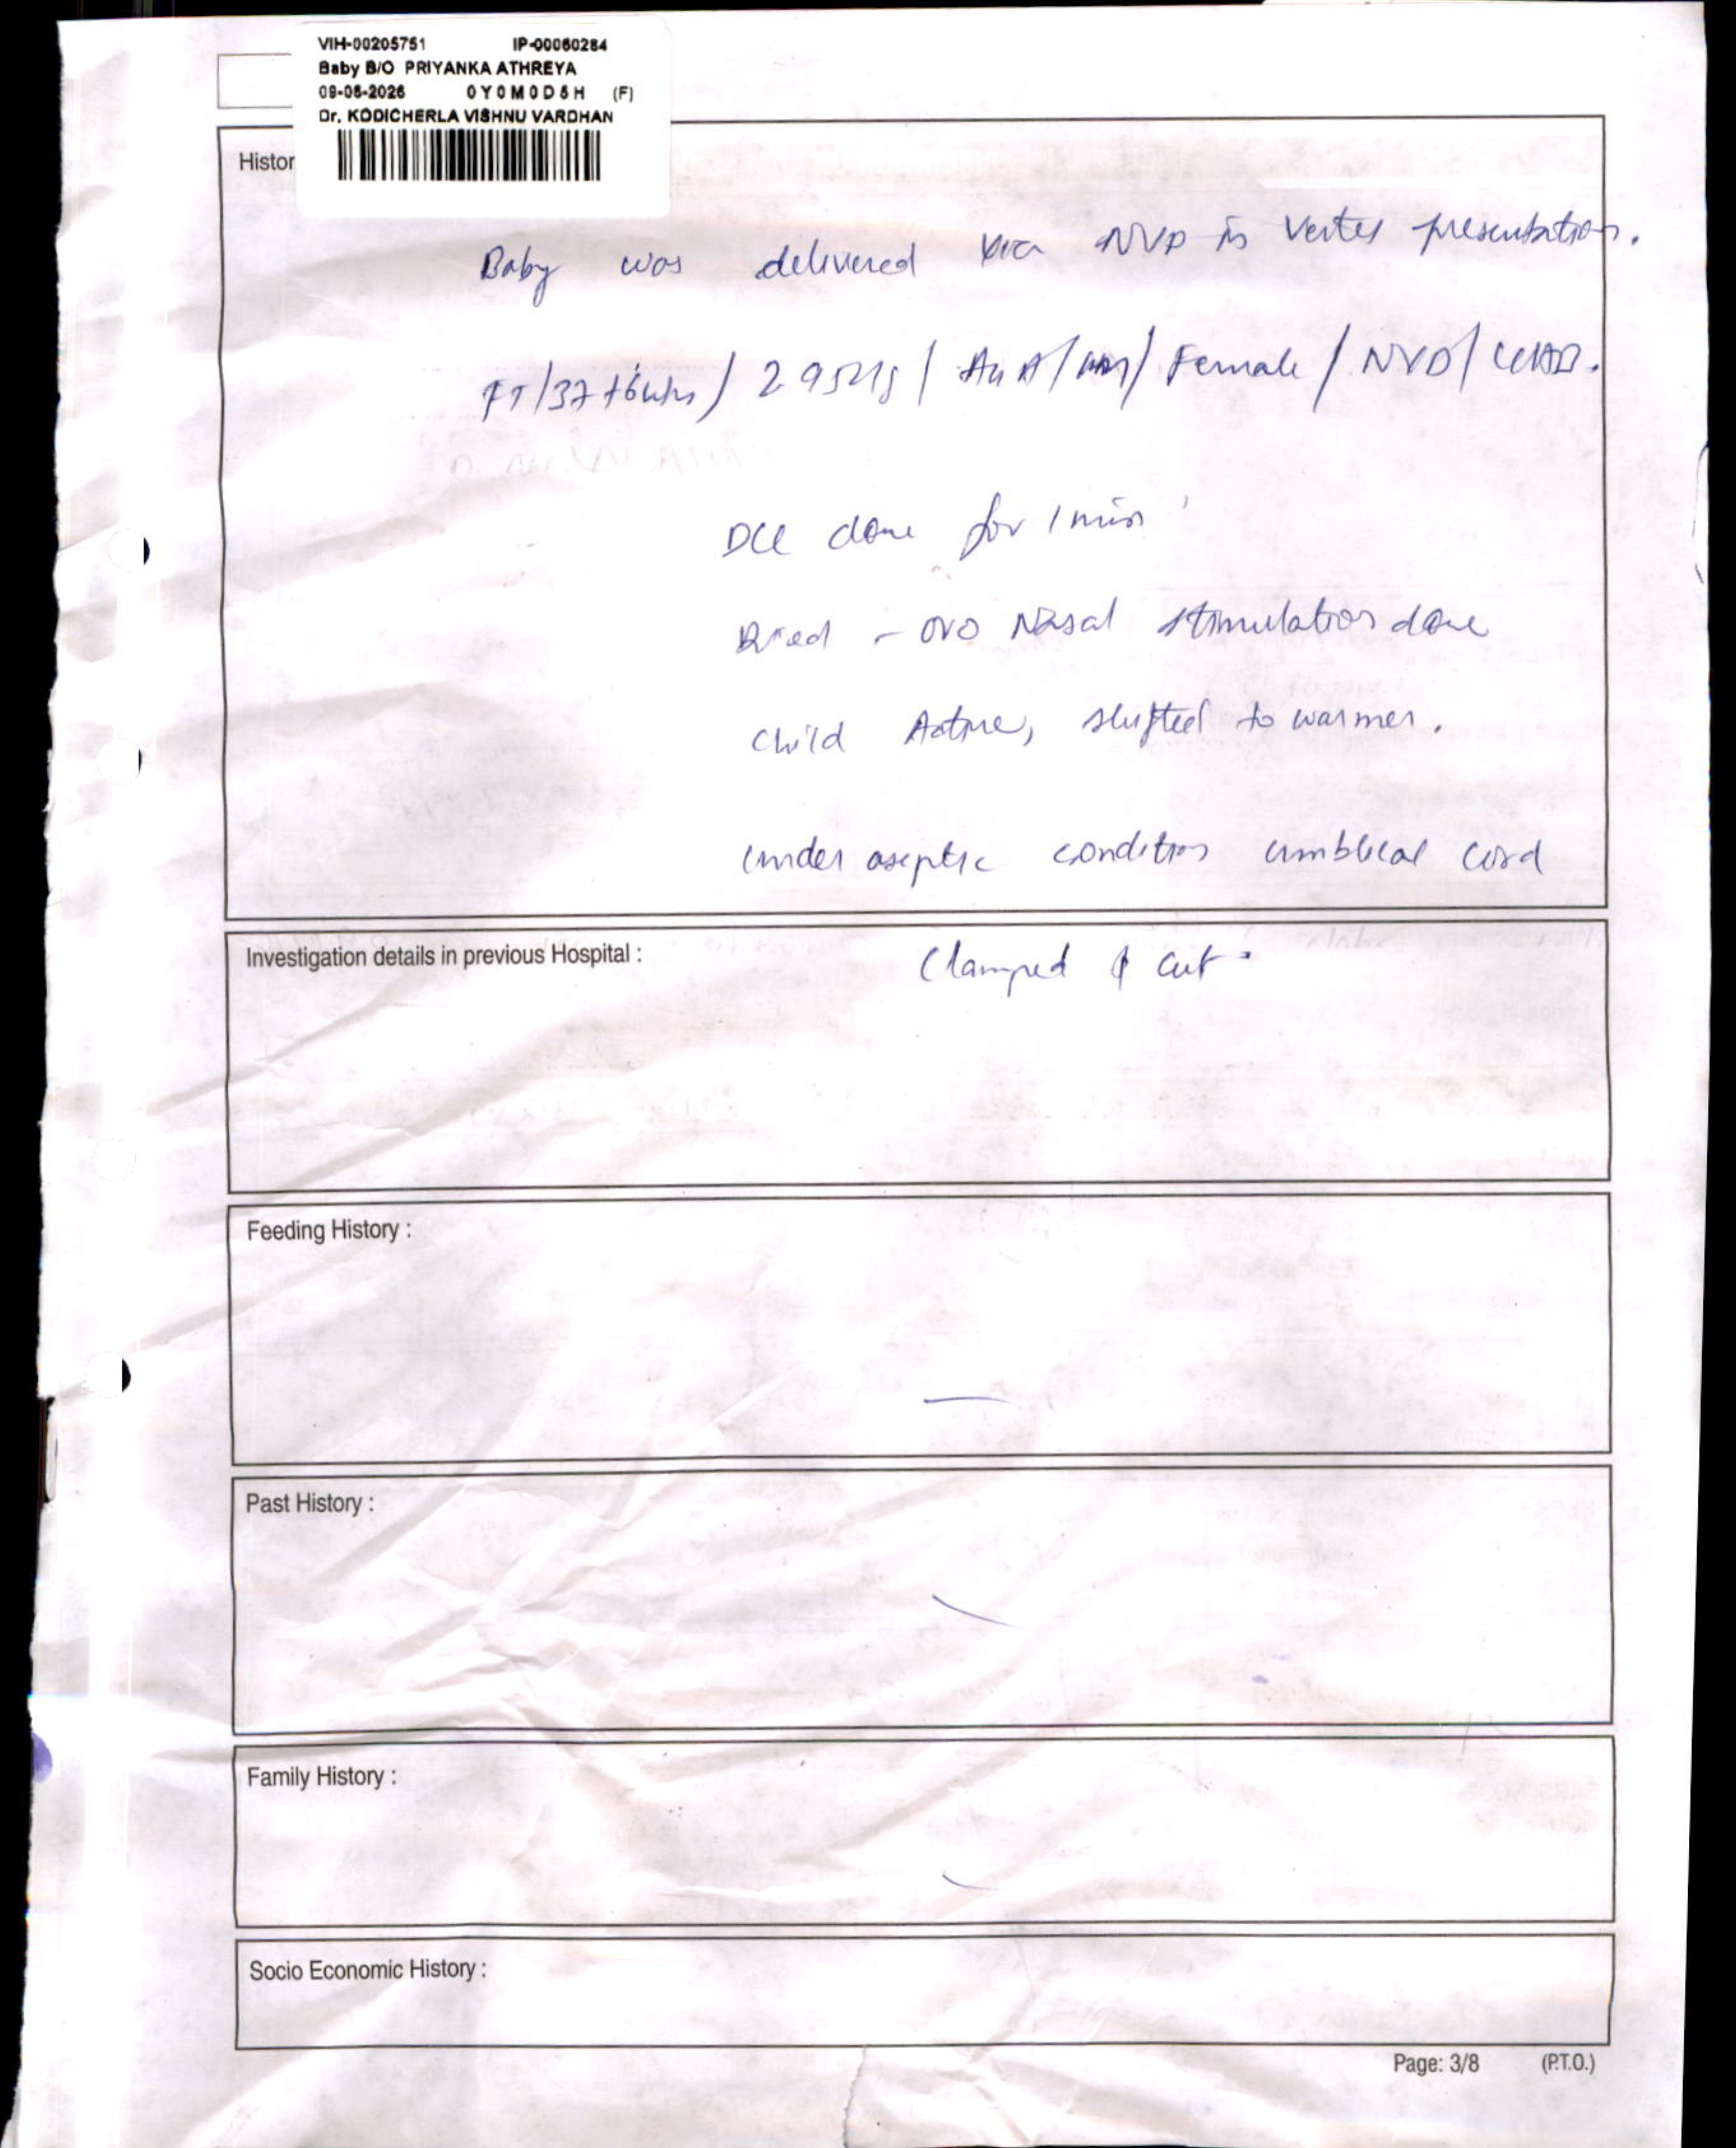 VIH-00205751 IP-00060284
Baby B/O PRIYANKA ATHREYA
09-06-2026 0Y0M0D5H (F)
Dr. KODICHERLA VISHNU VARDHAN
Histor
Baby was delivered via NVD in Vertex presentation.
FT/37+6wks/ / Female / NVD/
DCC done for 1 min
Dried - oro Nasal stimulation done
Child Active, shifted to warmer.
under aseptic condition umblical cord
Investigation details in previous Hospital :
Clamped & cut.
Feeding History :
Past History :
Family History :
Socio Economic History :
Page: 3/8 (P.T.O.)